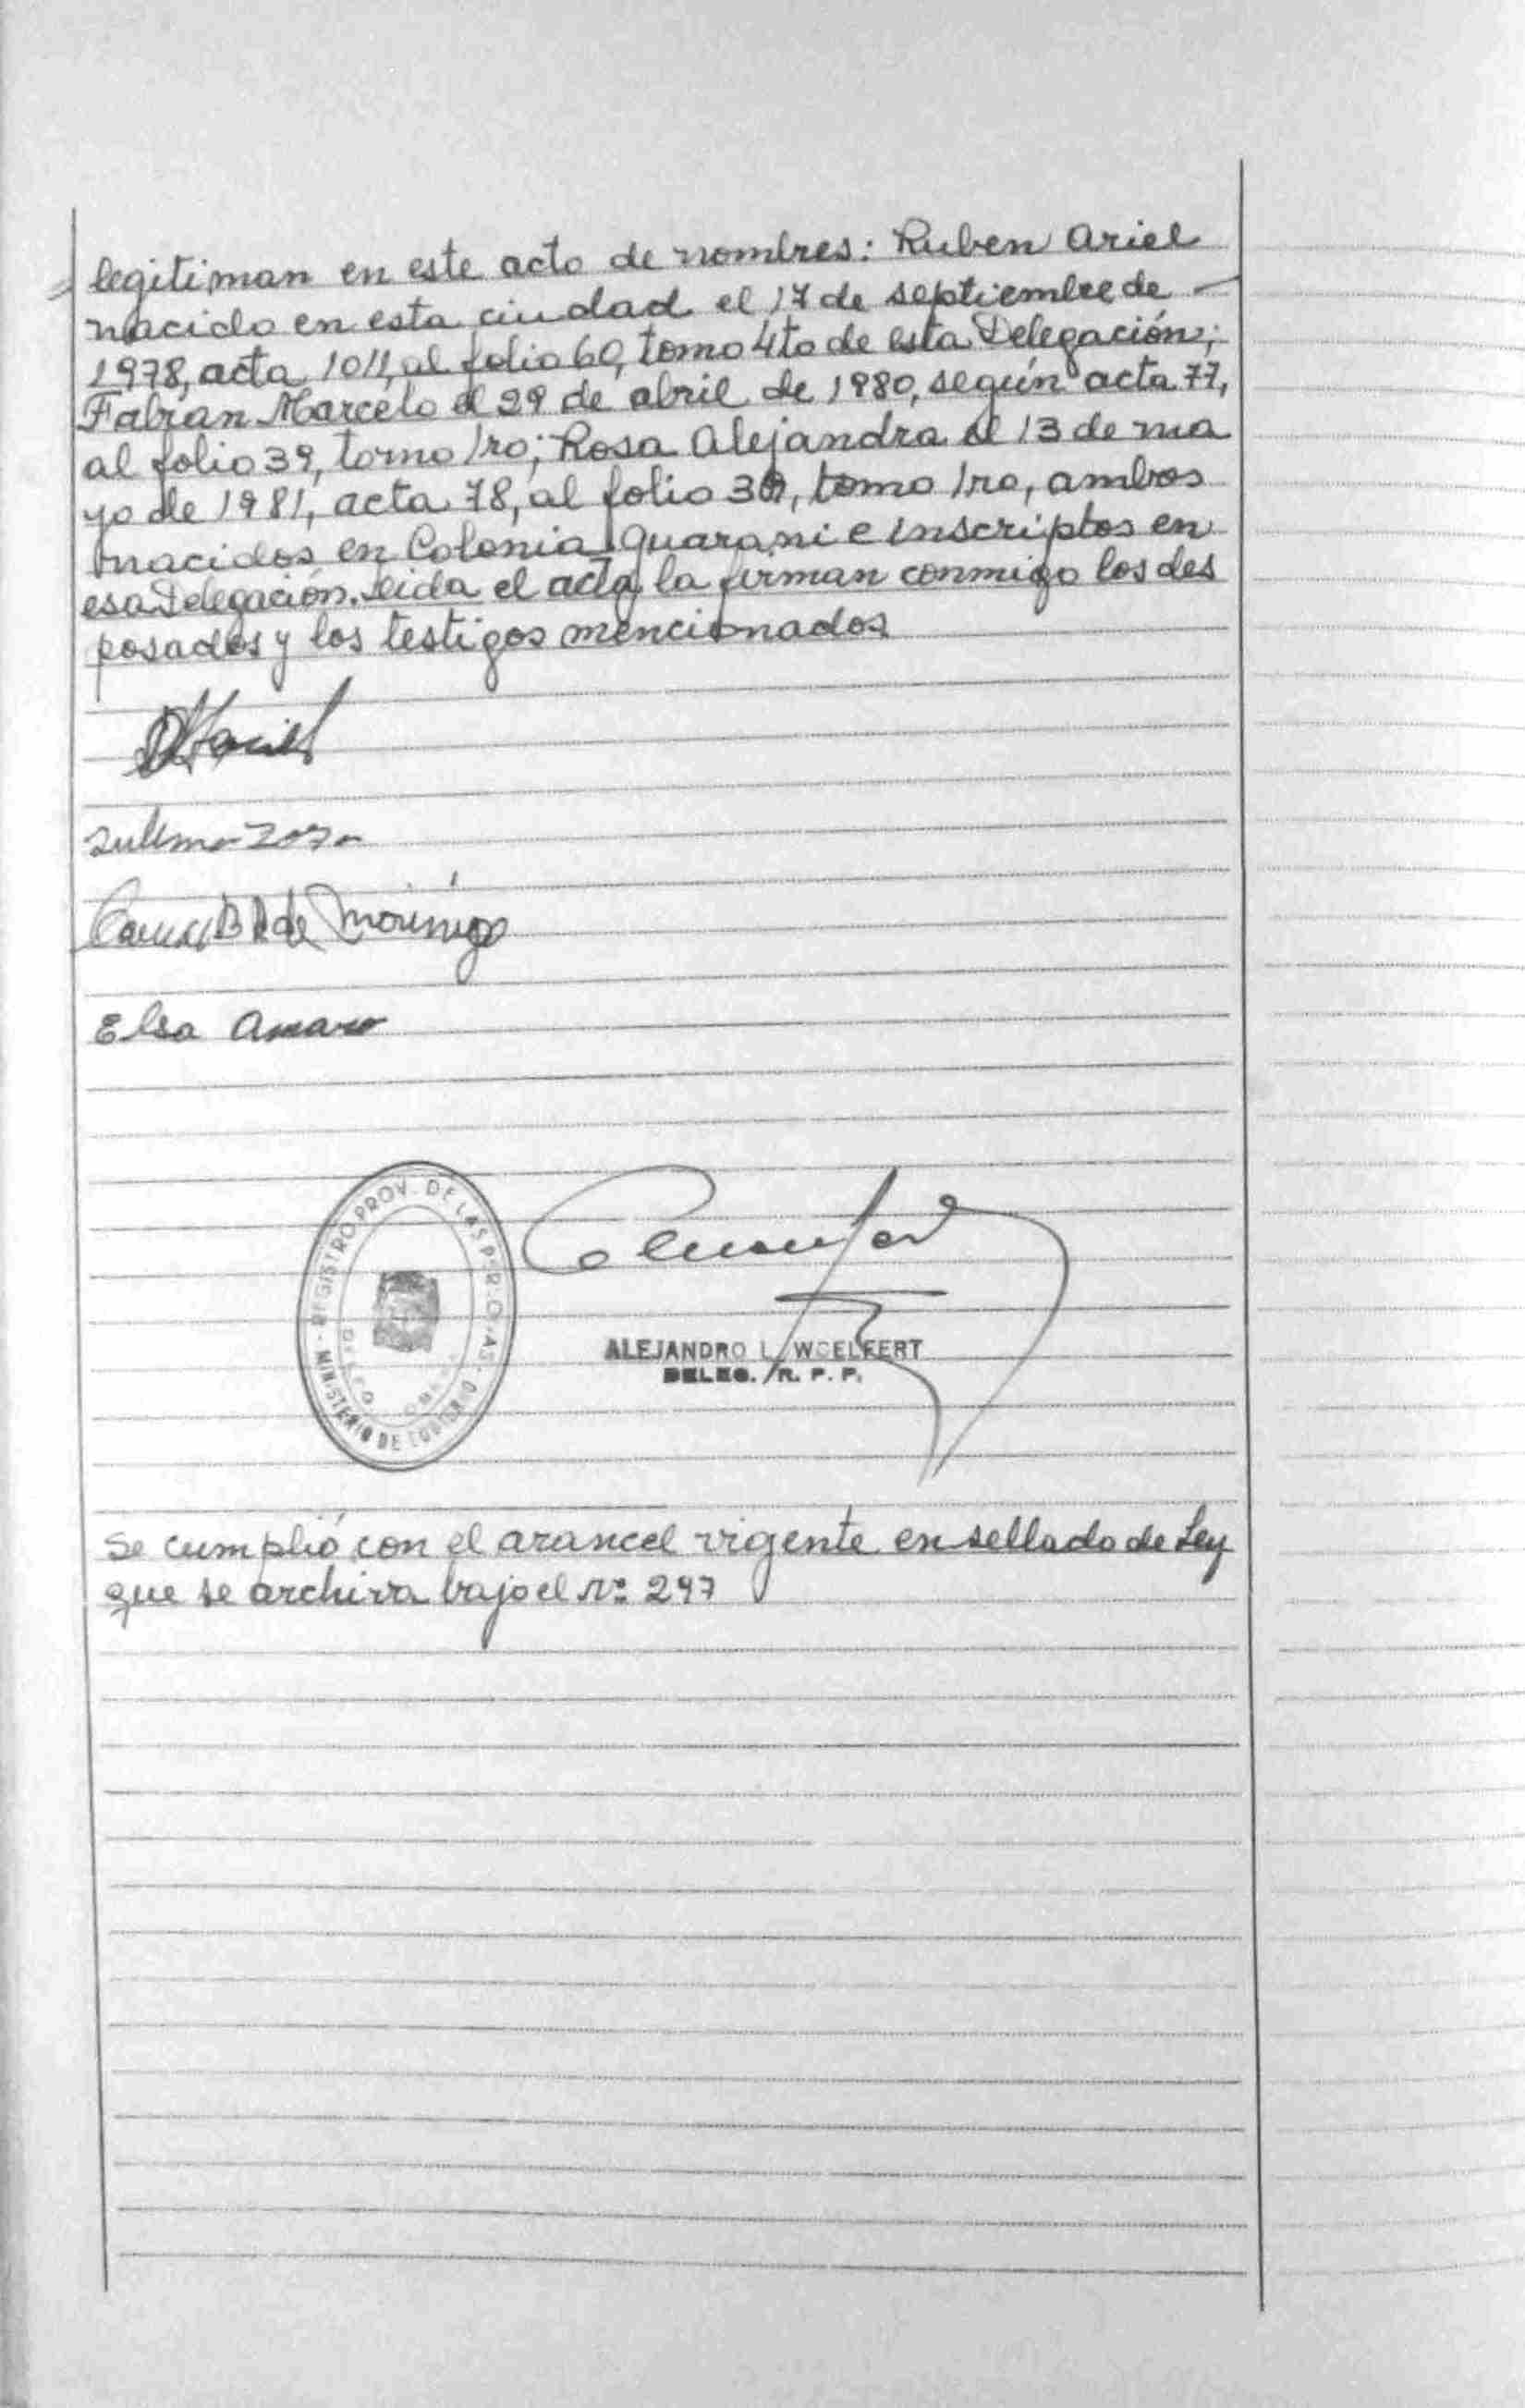 legitiman en este acto de nombres: Ruben Ariel
nacido en esta ciudad el 17 de septiembre de
1978, acta 1011, al folio 60, tomo 4to de esta Delegación;
Fabian Marcelo el 29 de abril de 1980, según acta 77,
al folio 39, tomo 1ro; Rosa Alejandra el 13 de ma
yo de 1981, acta 78, al folio 39, tomo 1ro, ambos
nacidos en Colonia Guarani e inscriptos en
esa Delegación. Leida el acta la firman conmigo los des
posados y los testigos mencionados
de Morinigo
Elsa Amaro
REGISTRO PROV. DE LAS P
MINISTERIO DE
ALEJANDRO L. WOELFERT
DELEG. R. P. P.
Se cumplió con el arancel vigente en sellado de Ley
que se archiva bajo el Nº 297